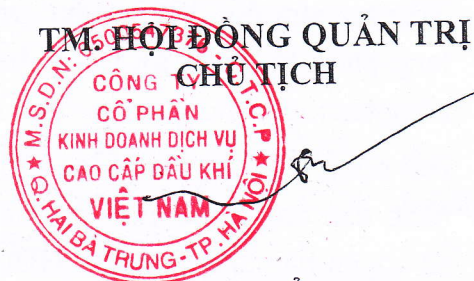 TM. HỘI ĐỒNG QUẢN TRỊ
CHỦ TỊCH
CÔNG TY
CỔ PHẦN
KINH DOANH DỊCH VỤ
CAO CẤP DẦU KHÍ
VIỆT NAM
M.S.D.N:
T.C.P
Q. HAI BÀ TRƯNG-TP. HÀ NỘI